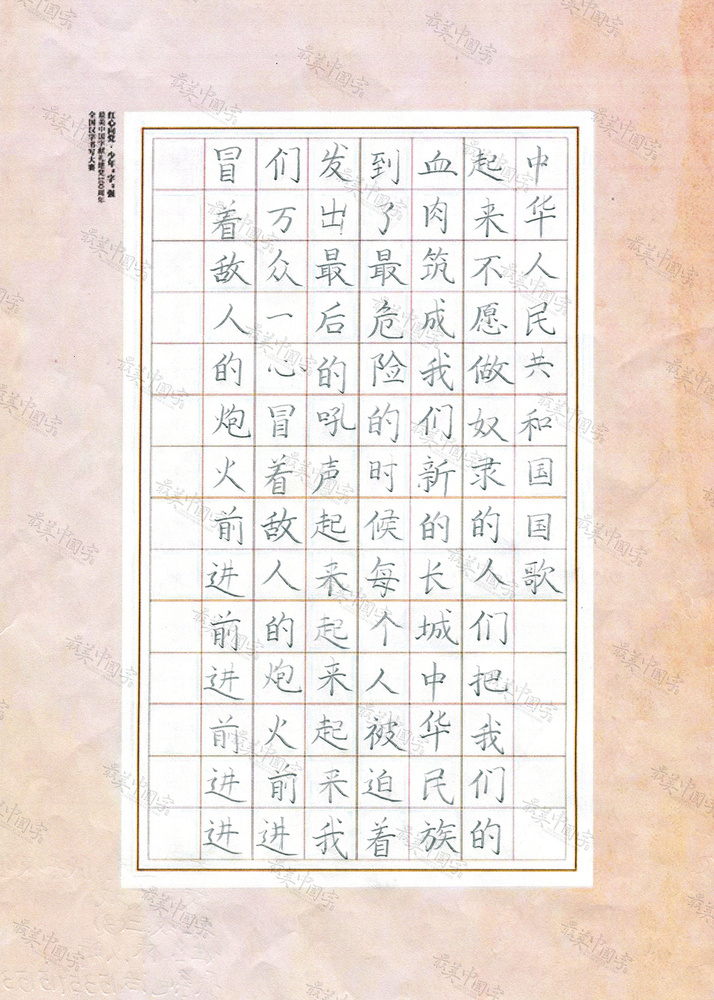 中华人民共和国国歌
起来不愿做奴隶的人们把我们的
血肉筑成我们新的长城中华民族
到了最危险的时候每个人被迫着
发出最后的吼声起来起来起来我
们万众一心冒着敌人的炮火前进
冒着敌人的炮火前进前进前进进
红心向党·少年“字”强
最美中国字献礼建党100周年
全国汉字书写大赛
最美中国字